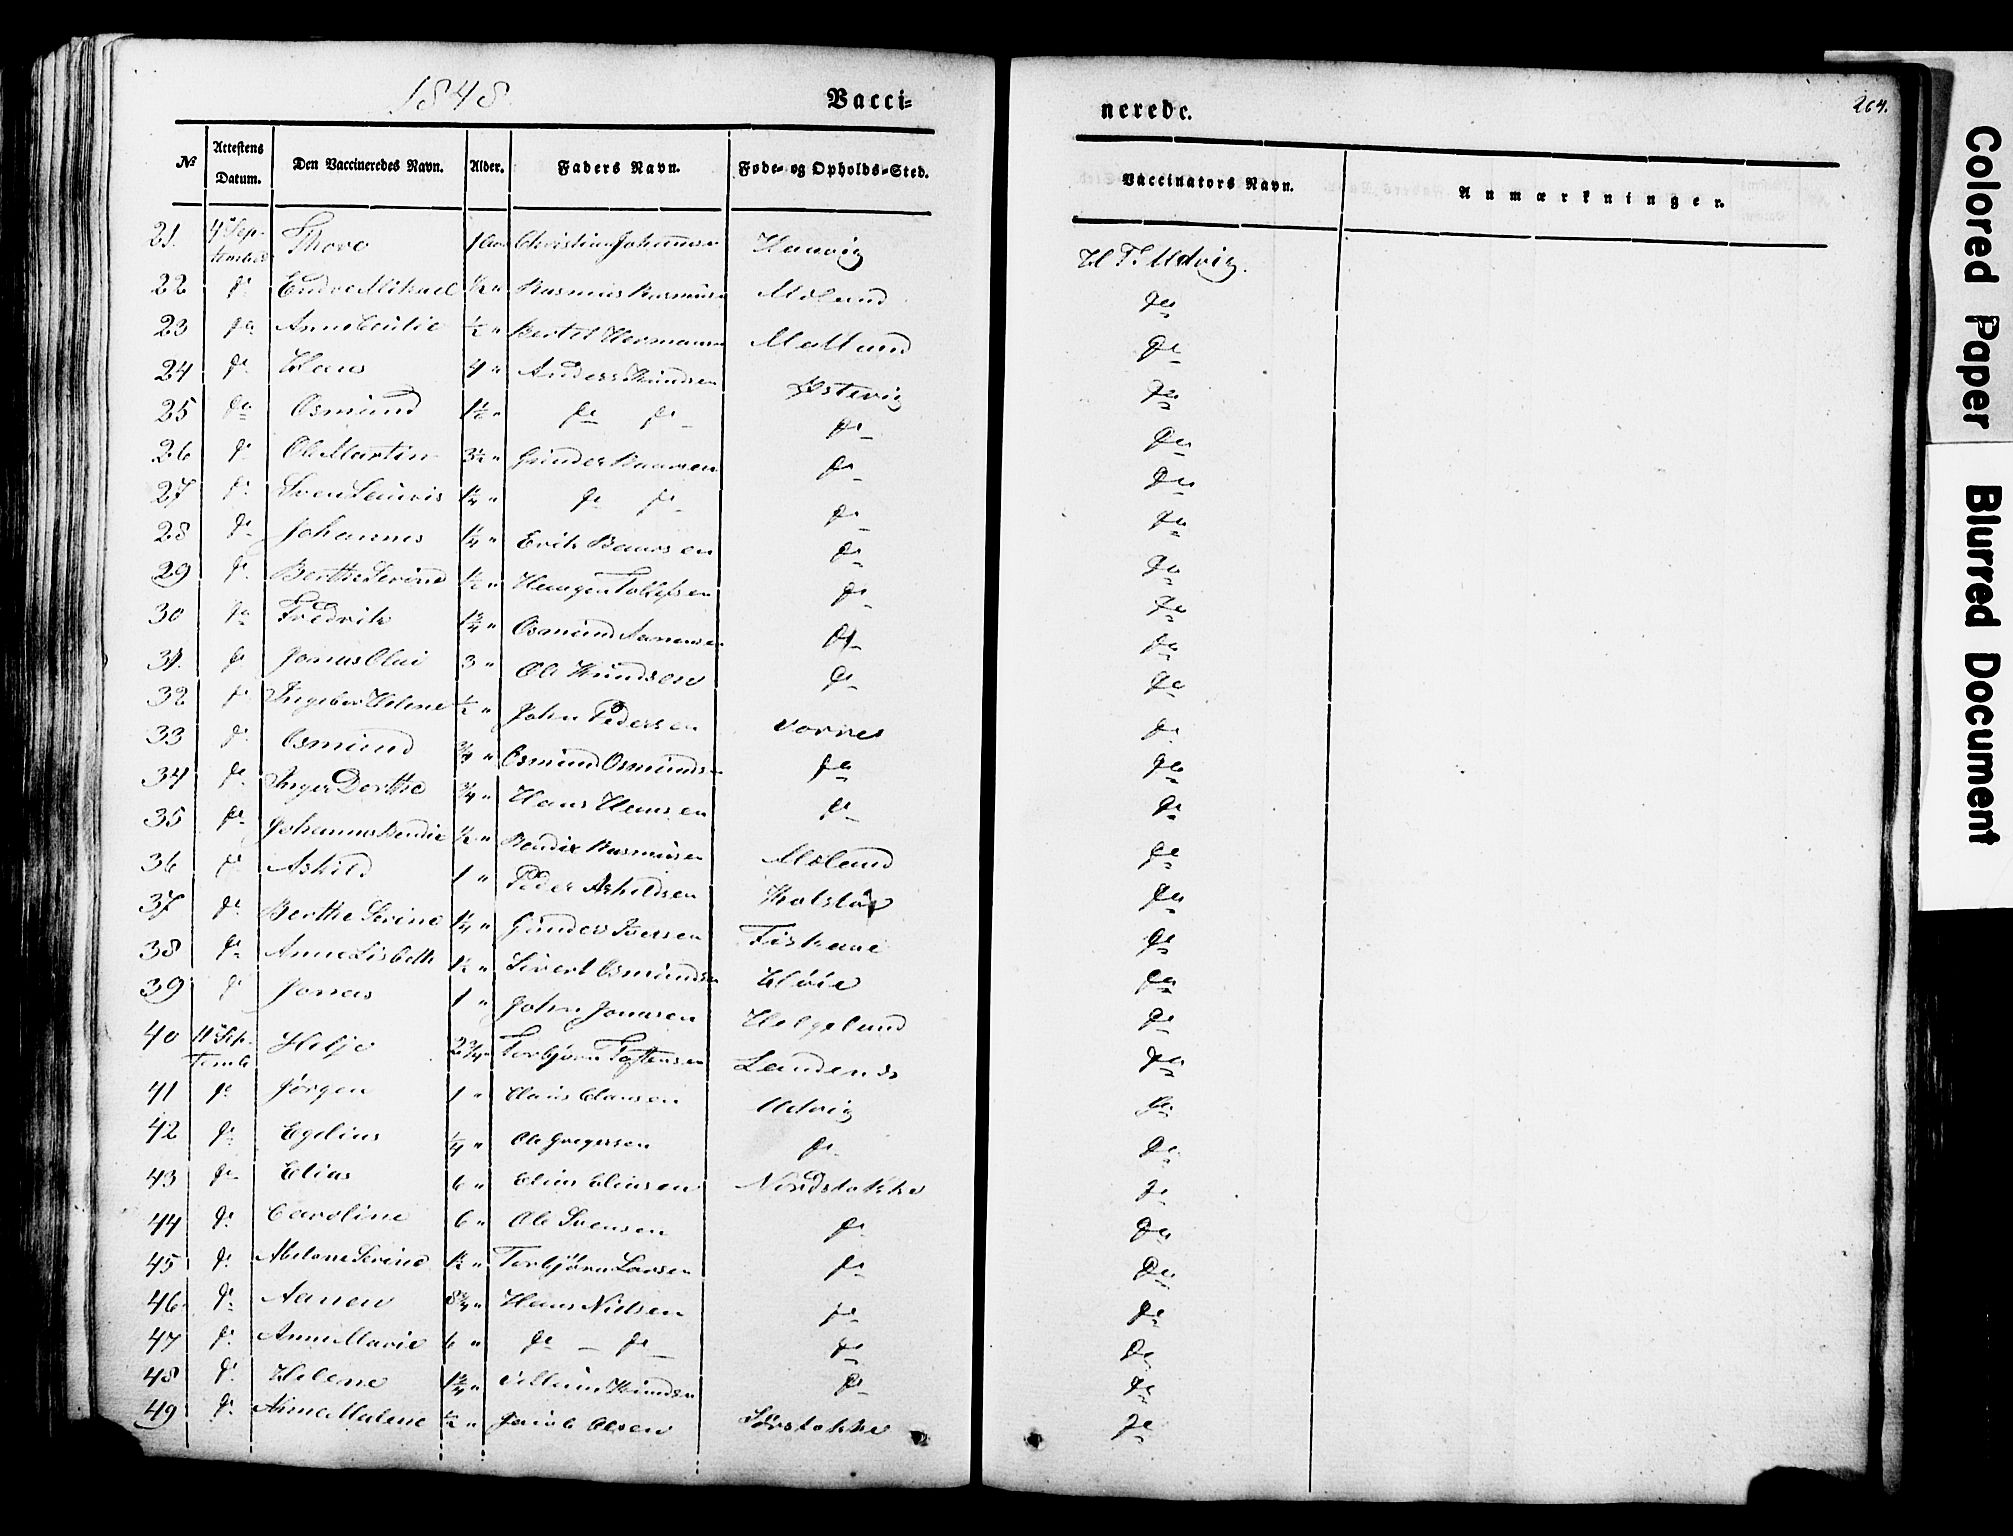 1848
Vacci-
nerede.
264.
№ Attestens Datum. Den Vaccineredes Navn. Alder. Faders Navn. Føde- og Opholds-Sted. Vaccinators Navn. Anmærkninger.
21. 4 Sep-tember Thore 1 Christian Johannsen Hanvig T. Udvig.
22 do Endre Mikael ½ " Rasmus Rasmusen Moland do
23 do Anne Cecilie ½ " Bertel Hermansen Molland do
24 do Hans 4 " Anders Knudsen Østevig do
25 do Osmund 1½ " do do do do
26 do Ole Martin 3½ " Gunder Baarsen do do
27 do Sven Lauvis 1¼ " do do do do
28 do Johannes 1¼ " Erik Baarsen do do
29 do Berthe Serine 1½ " Haagen Tollefsen do do
30 do Fredrik 1¾ " Osmund Aanensen do do
31. do Jonas Olai 3 " Ole Knudsen do do
32 do Ingebor Helene ½ " John Pedersen Vorres do
33 do Osmund ¾ " Osmund Osmundsen do do
34 do Inger Dorthe ¾ " Hans Hansen do do
35 do Johannes Bendix ½ " Bendix Rasmusen Moland do
36 do Askild 1 " Peder Askildsen do
37 do Berthe Serine 1¼ " Gunder Iversen Fiskaae do
38 do Anne Lisbeth 1½ " Sivert Osmundsen Høie do
39 do Jonas 1 " John Jonasen Helgeland do
40 11 Sep-temb Helje 2¾ " Torbjørn Torstensen Landends do
41 do Jørgen 1 " Claus Clausen Udvig do
42 do Egelius ¼ " Ole Gregersen do do
43 do Elias 6 " Elias Eliasen Nordstokke do
44 do Caroline 6 " Ole Svensen do do
45 do Abelone Serine 1½ " Torbjørn Larsen do do
46 do Aanen 8¾ " Hans Nielsen do do
47 do Anne Marie 6 " do – do – do do
48 do Helene 1¾ " Villum Knudsen do do
49 do Anne Malene ½ " Jacob Olsen Sørstokke do
Colored Paper Blurred Document